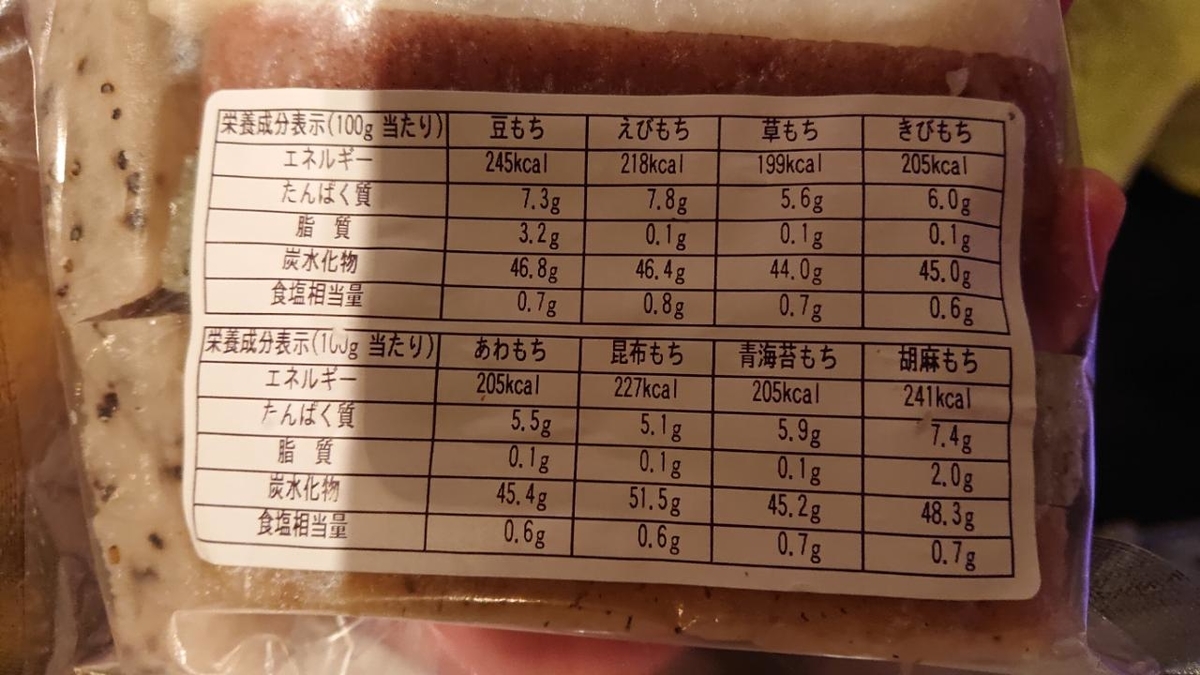 栄養成分表示(100g 当たり) 豆もち えびもち 草もち きびもち
エネルギー 245kcal 218kcal 199kcal 205kcal
たんぱく質 7.3g 7.8g 5.6g 6.0g
脂 質 3.2g 0.1g 0.1g 0.1g
炭水化物 46.8g 46.4g 44.0g 45.0g
食塩相当量 0.7g 0.8g 0.7g 0.6g
栄養成分表示(100g 当たり) あわもち 昆布もち 青海苔もち 胡麻もち
エネルギー 205kcal 227kcal 205kcal 241kcal
たんぱく質 5.5g 5.1g 5.9g 7.4g
脂 質 0.1g 0.1g 0.1g 2.0g
炭水化物 45.4g 51.5g 45.2g 48.3g
食塩相当量 0.6g 0.6g 0.7g 0.7g